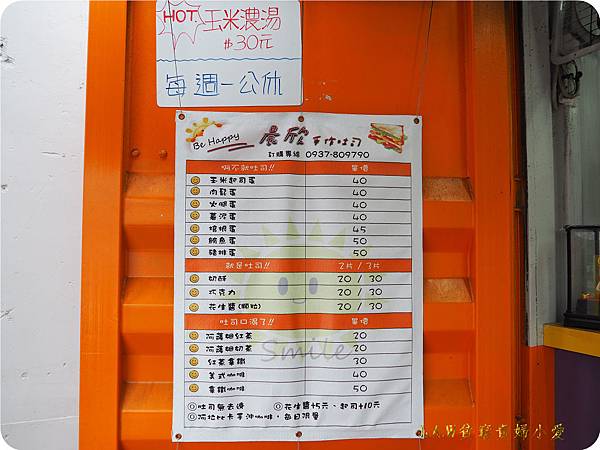 HOT 玉米濃湯
$30元
每週一公休
Be Happy 晨欣手作吐司
訂購專線 0937-809790
啊不就吐司!! 單價
玉米起司蛋 40
肉鬆蛋 40
火腿蛋 40
薯泥蛋 40
培根蛋 45
鮪魚蛋 50
豬排蛋 50
就是吐司!! 2片 / 3片
奶酥 20 / 30
巧克力 20 / 30
花生醬(顆粒) 20 / 30
吐司口渴了!! 單價
阿薩姆紅茶 20
阿薩姆奶茶 20
紅茶拿鐵 30
美式咖啡 40
拿鐵咖啡 50
Smile
◎吐司無去邊 ◎花生醬+5元、起司+10元
◎阿拉比卡手沖咖啡，每日限量